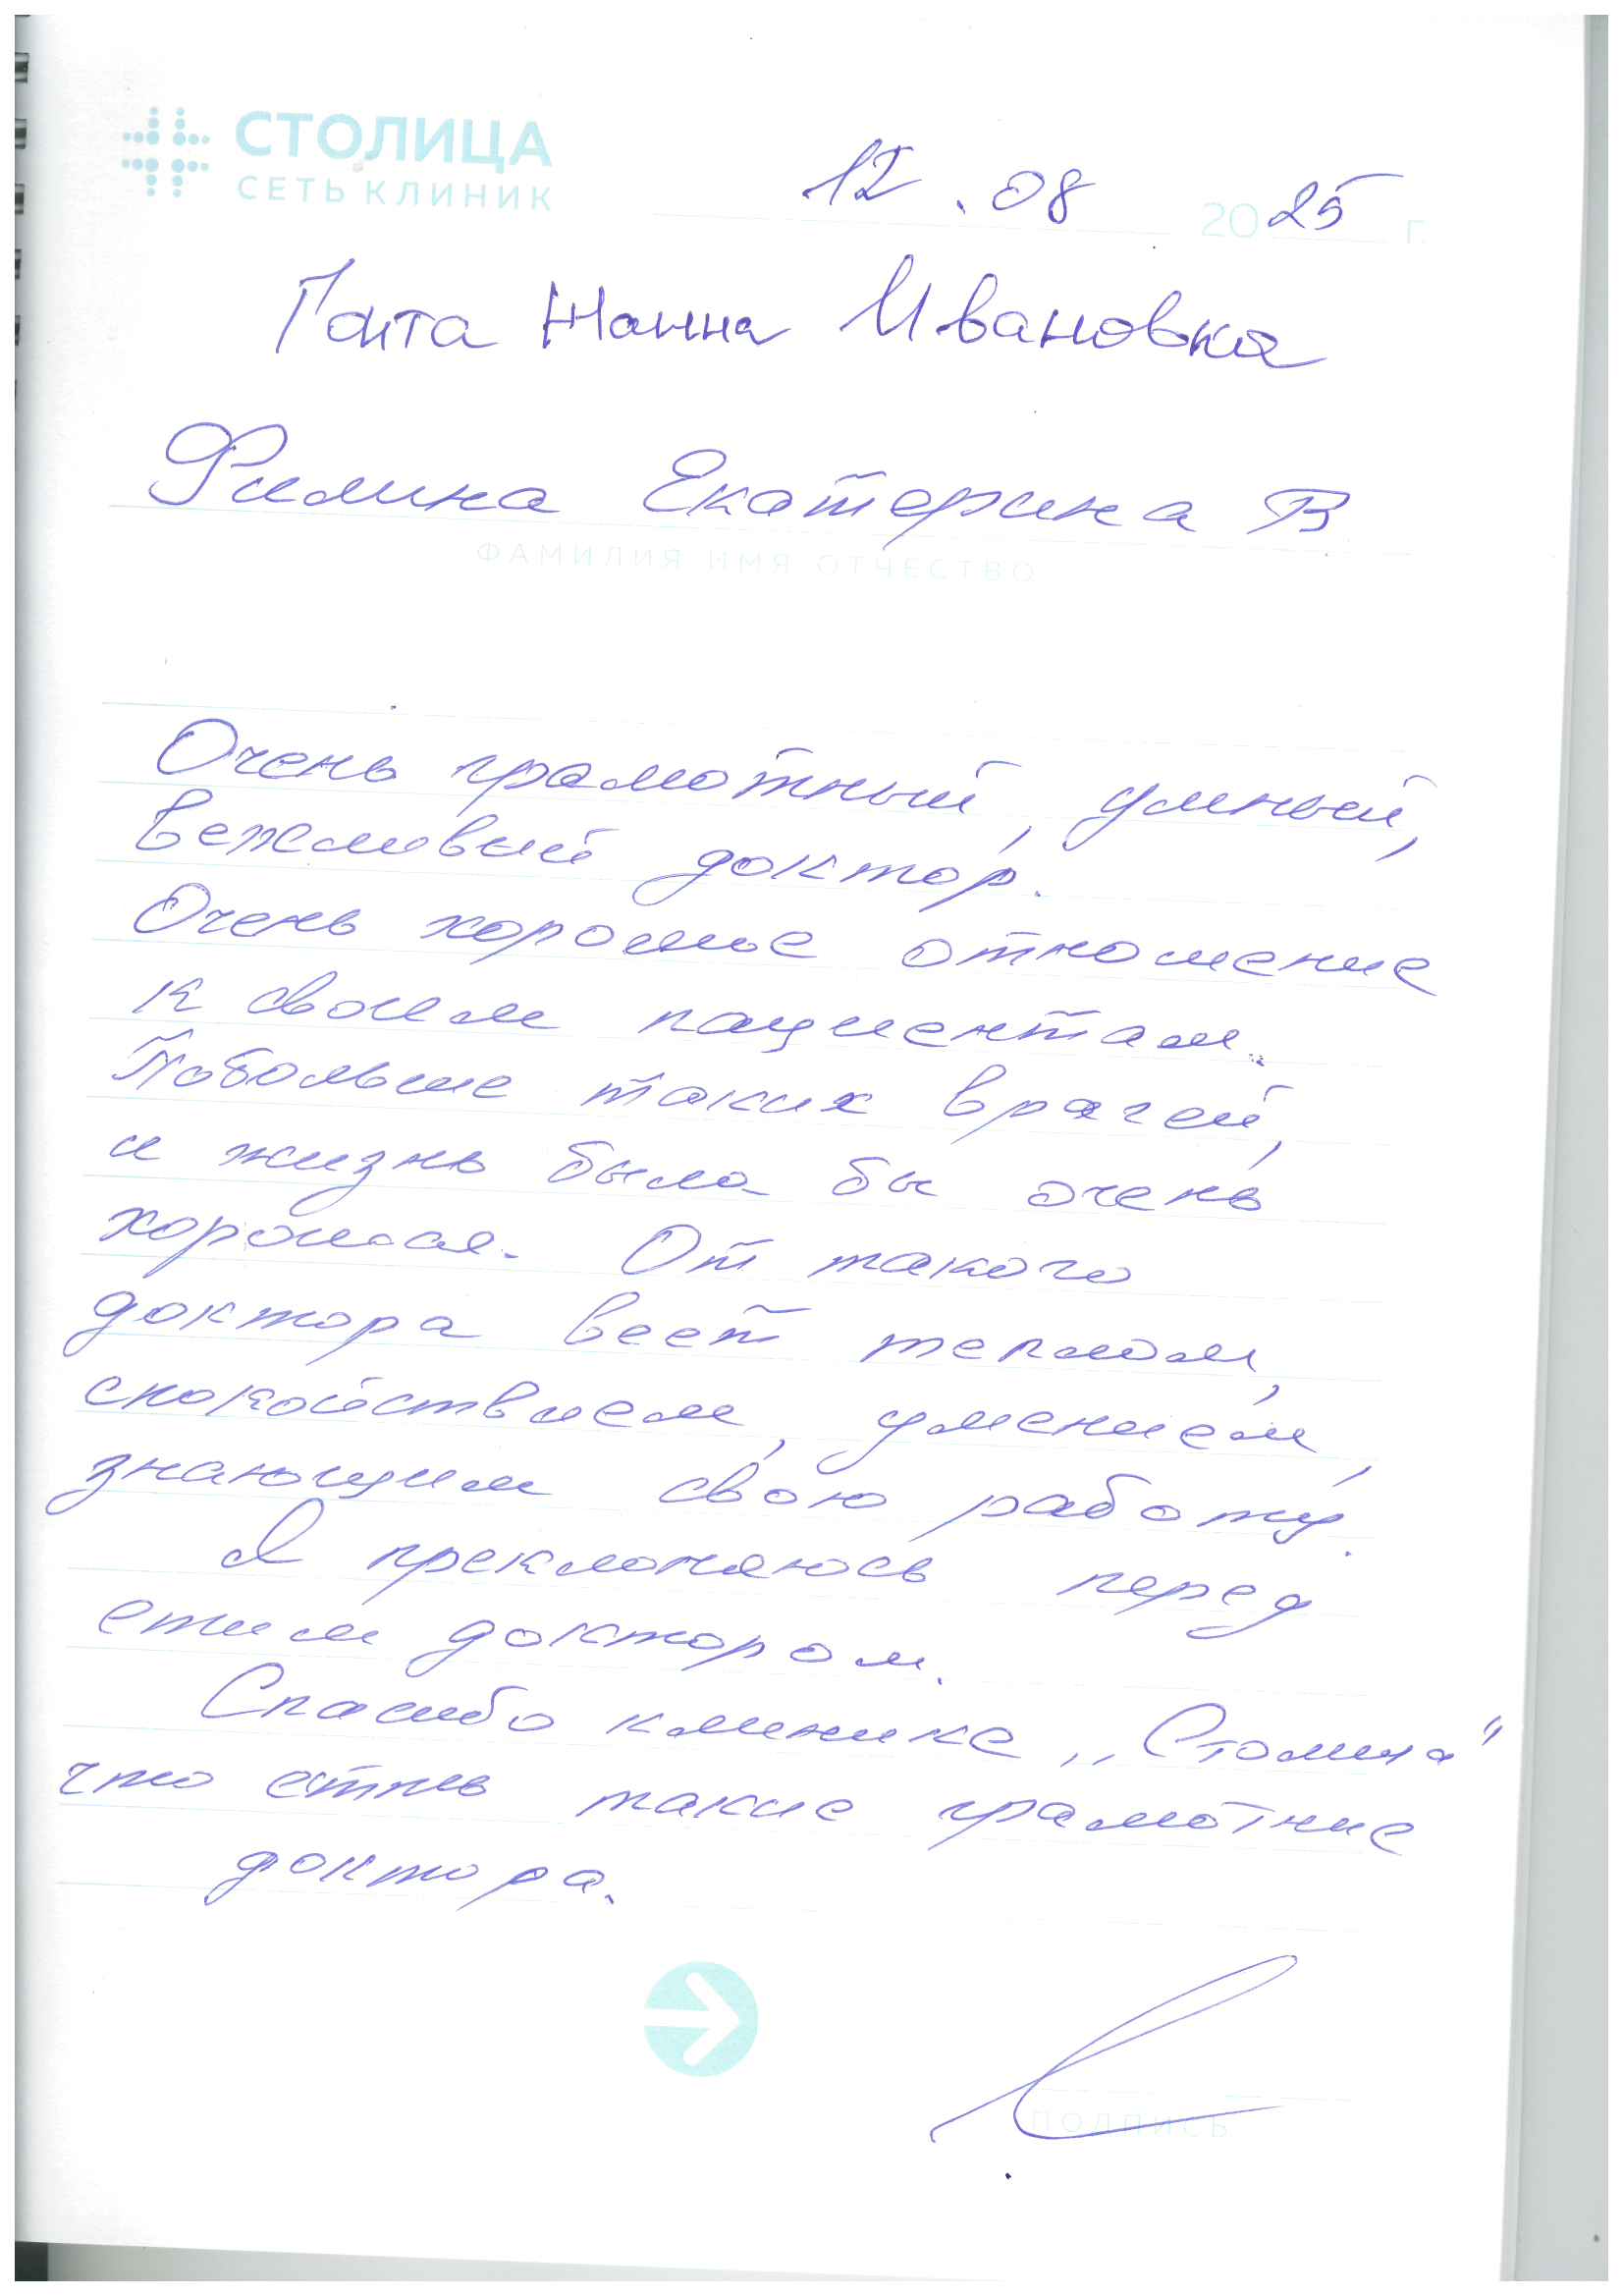 СТОЛИЦА
СЕТЬ КЛИНИК
12.08 2025 г.
Гаита Жанна Ивановна
Филина Екатерина В
ФАМИЛИЯ ИМЯ ОТЧЕСТВО
Очень грамотный, умный,
вежливый доктор.
Очень хорошое отношение
к своим пациентам.
Побольше таких врачей,
и жизнь была бы очень
хорошая. От такого
доктора веет теплом,
спокойствием, умением,
знающим свою работу.
Я преклоняюсь перед
етим доктором.
Спасибо клинике „Столица"
что есть такие грамотные
доктора.
ПОДПИСЬ